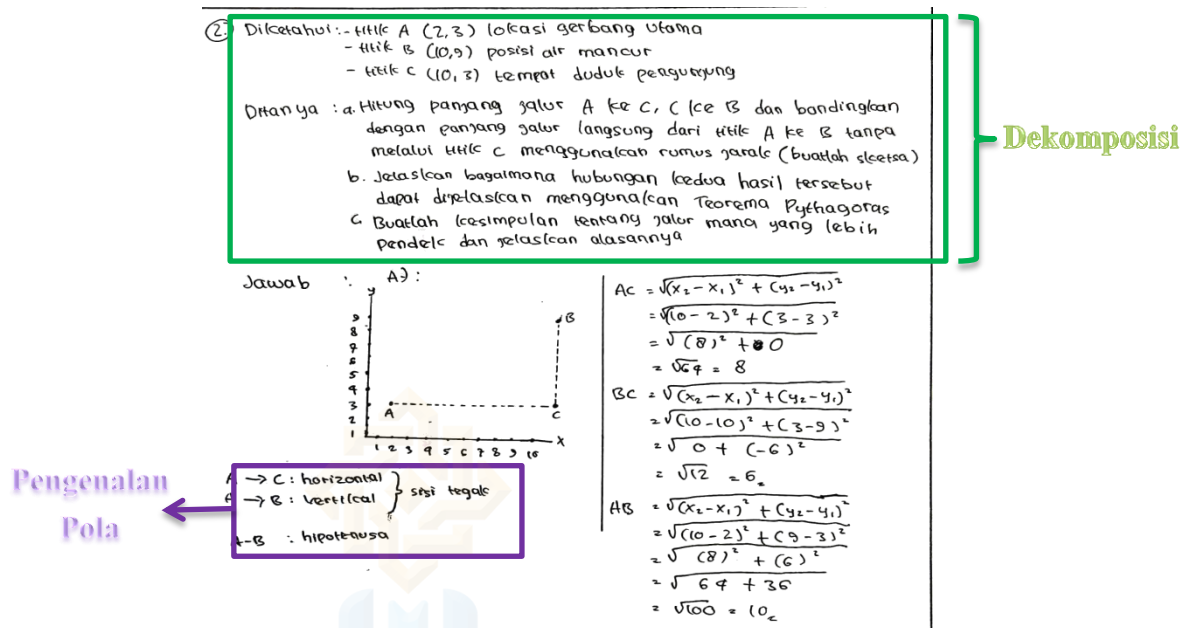 2. Diketahui : - titik A (2,3) lokasi gerbang utama
- titik B (10,9) posisi air mancur
- titik C (10,3) tempat duduk pengunjung
Ditanya : a. Hitung panjang jalur A ke C, C ke B dan bandingkan
dengan panjang jalur langsung dari titik A ke B tanpa
melalui titik C menggunakan rumus jarak (buatlah sketsa)
b. Jelaskan bagaimana hubungan kedua hasil tersebut
dapat dijelaskan menggunakan Teorema Pythagoras
c. Buatlah kesimpulan tentang jalur mana yang lebih
pendek dan jelaskan alasannya
Dekomposisi
Jawab : A) :
y
9
8
7
6
5
4
3
2
1
B
A
C
1 2 3 4 5 6 7 8 9 10
x
A → C : horizontal
A → B : vertikal
} sisi tegak
A-B : hipotenusa
Pengenalan
Pola
AC = √(x₂ - x₁)² + (y₂ - y₁)²
= √(10 - 2)² + (3 - 3)²
= √(8)² + 0
= √64 = 8
BC = √(x₂ - x₁)² + (y₂ - y₁)²
= √(10 - 10)² + (3 - 9)²
= √0 + (-6)²
= √12 = 6
AB = √(x₂ - x₁)² + (y₂ - y₁)²
= √(10 - 2)² + (9 - 3)²
= √(8)² + (6)²
= √64 + 36
= √100 = 10